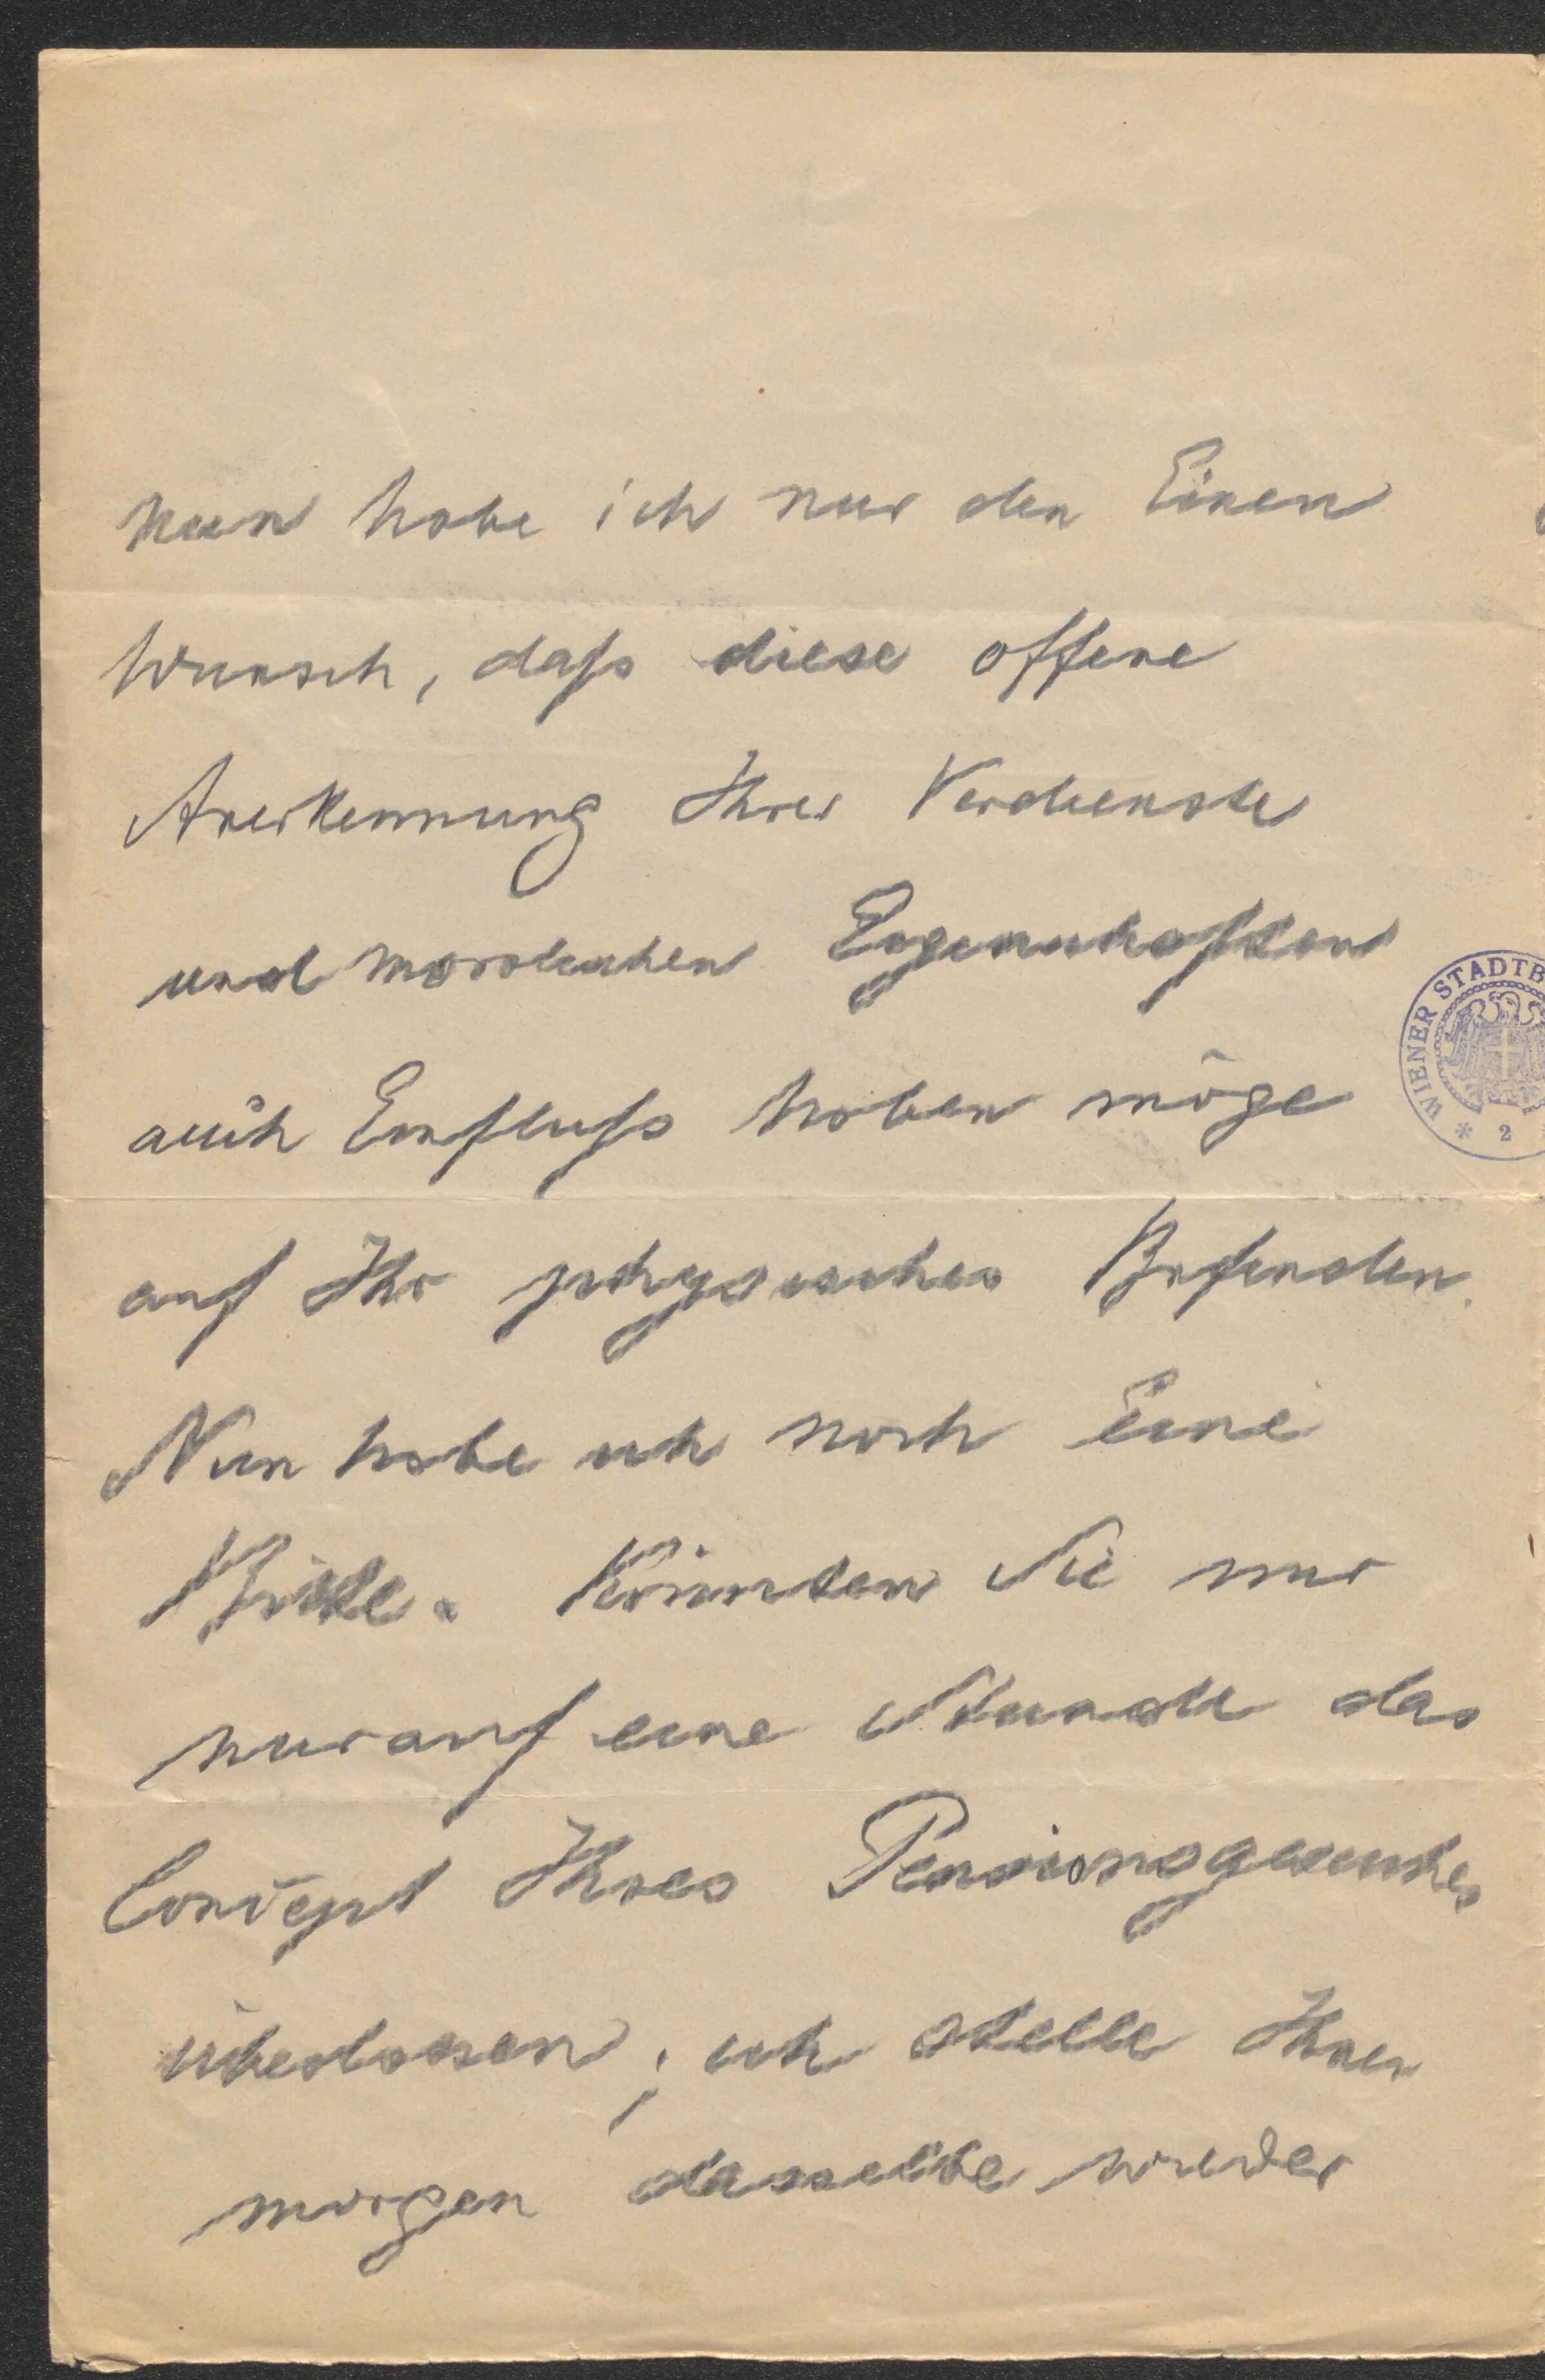 nun habe ich nur den Einen
Wunsch, daß diese offene
Anerkennung Ihrer Verdienste
und moralischen Eigenschaften
auch Einfluß haben möge
auf Ihr physisches Befinden.
Nun habe ich noch Eine
Bitte. Könnten Sie mir
nur auf eine Stunde das
Concept Ihres Pensionsgesuches
überlassen; ich stelle Ihnen
morgen dasselbe wieder
WIENER STADTB
* 2